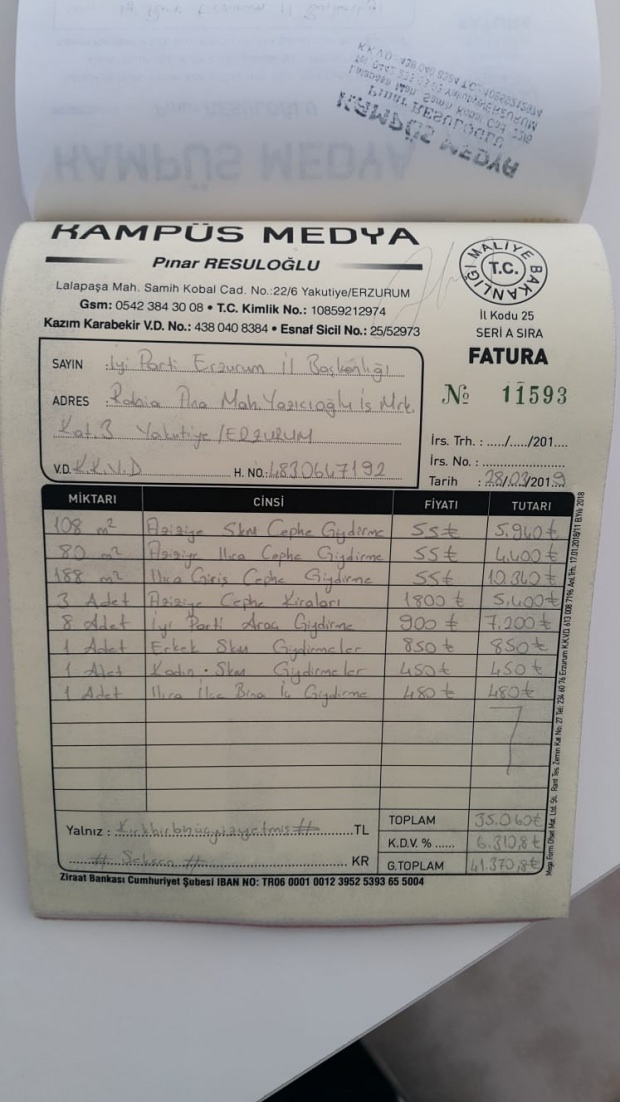 KAMPÜS MEDYA
Pınar RESULOĞLU
Lalapaşa Mah. Samih Kobal Cad. No.:22/6 Yakutiye/ERZURUM
Gsm: 0542 384 30 08 • T.C. Kimlik No.: 10859212974
Kazım Karabekir V.D. No.: 438 040 8384 • Esnaf Sicil No.: 25/52973
T.C. MALİYE BAKANLIĞI
İl Kodu 25
SERİ A SIRA
FATURA
№ 11593
SAYIN : İyi Parti Erzurum İl Başkanlığı
ADRES : Rabia Ana Mah. Yazıcıoğlu İş Mrk.
Kat.3 Yakutiye/ERZURUM
V.D. K.K.V.D H. NO.: 4830647192
İrs. Trh. : ...../...../201....
İrs. No. : ......................
Tarih : 28/03/2019
MİKTARI CİNSİ FİYATI TUTARI
108 m² Aziziye Skm Cephe Giydirme 55₺ 5.940₺
80 m² Aziziye Ilıca Cephe Giydirme 55₺ 4.400₺
188 m² Ilıca Giriş Cephe Giydirme 55₺ 10.340₺
3 Adet Aziziye Cephe Kiraları 1800₺ 5.400₺
8 Adet İyi Parti Araç Giydirme 900₺ 7.200₺
1 Adet Erkek Skm Giydirmeler 850₺ 850₺
1 Adet Kadın Skm Giydirmeler 450₺ 450₺
1 Adet Ilıca İlçe Bina İç Giydirme 480₺ 480₺
Yalnız : Kırkbirbinüçyüzyetmiş # TL
# Seksen # KR
TOPLAM 35.060₺
K.D.V. % ...... 6.310,8₺
G.TOPLAM 41.370,8₺
Ziraat Bankası Cumhuriyet Şubesi IBAN NO: TR06 0001 0012 3952 5393 65 5004